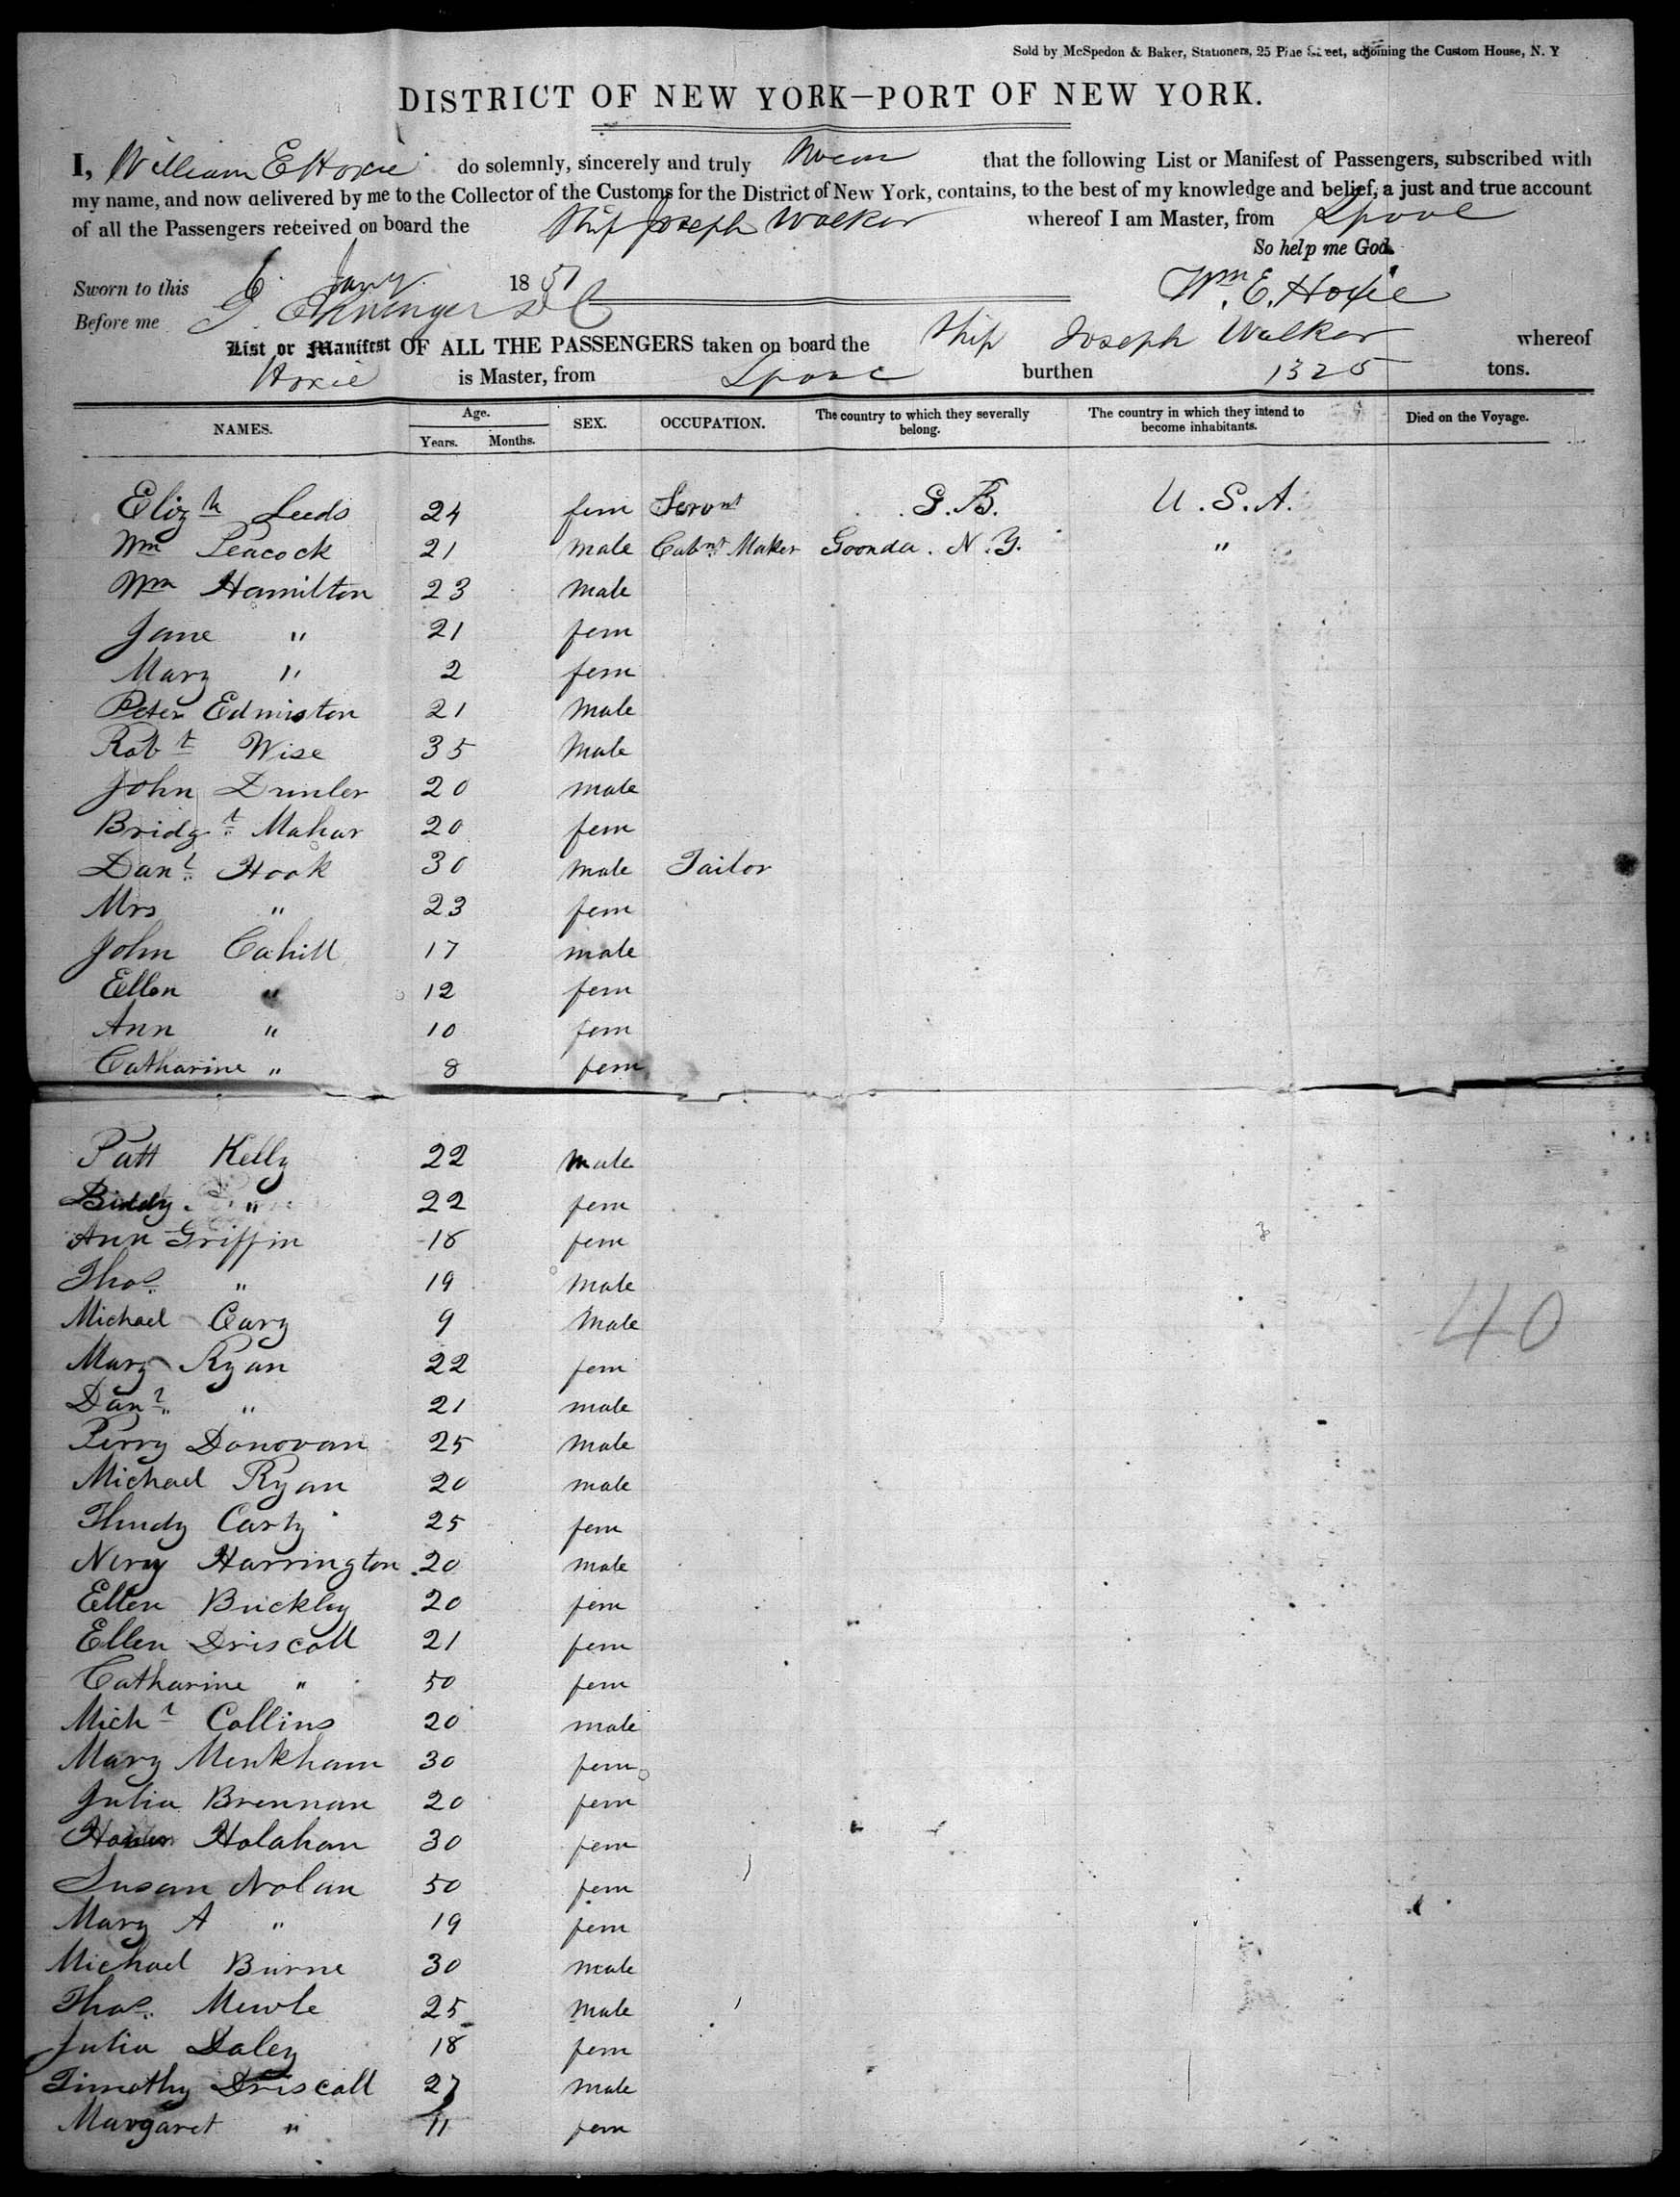 Sold by McSpedon & Baker, Stationers, 25 Pine Street, adjoining the Custom House, N. Y
DISTRICT OF NEW YORK—PORT OF NEW YORK.
I, William E Hoxie do solemnly, sincerely and truly Swear that the following List or Manifest of Passengers, subscribed with
my name, and now delivered by me to the Collector of the Customs for the District of New York, contains, to the best of my knowledge and belief, a just and true account
of all the Passengers received on board the Ship Joseph Walker whereof I am Master, from Lpool
So help me God.
Sworn to this 6 Jany. 1851 Wm. E. Hoxie
Before me
List or Manifest OF ALL THE PASSENGERS taken on board the Ship Joseph Walker whereof
Hoxie is Master, from Lpool burthen 1325 tons.
NAMES. Age. Years. Months. SEX. OCCUPATION. The country to which they severally belong. The country in which they intend to become inhabitants. Died on the Voyage.
Elizh Leeds 24 fem Servnt G.B. U.S.A.
Wm Peacock 21 Male Cabnt Maker N.Y. "
Wm Hamilton 23 Male
Jane " 21 fem
Mary " 2 fem
Peter Edmiston 21 Male
Robt Wise 35 Male
John 20 Male
Bridgt Mahar 20 fem
Danl Hook 30 Male Tailor
Mrs " 23 fem
John Cahill 17 male
Ellen " 12 fem
Ann " 10 fem
Catharine " 8 fem
Patt Kelly 22 Male
Biddy " 22 fem
Ann Griffin 18 fem
Thos " 19 Male
Michael Cary 9 Male
40
Mary Ryan 22 fem
Danl " 21 male
Perry Donovan 25 Male
Michael Ryan 20 male
Carty 25 fem
Harrington 20 Male
Ellen Brickley 20 fem
Ellen Driscoll 21 fem
Catharine " 50 fem
Michl Collins 20 male
Mary Menkham 30 fem
Julia Brennan 20 fem
Holahan 30 fem
Susan Nolan 50 fem
Mary A " 19 fem
Michael Burne 30 male
Thos. 25 Male
Julia Daley 18 fem
Timothy Driscoll 27 Male
Margaret " 11 fem